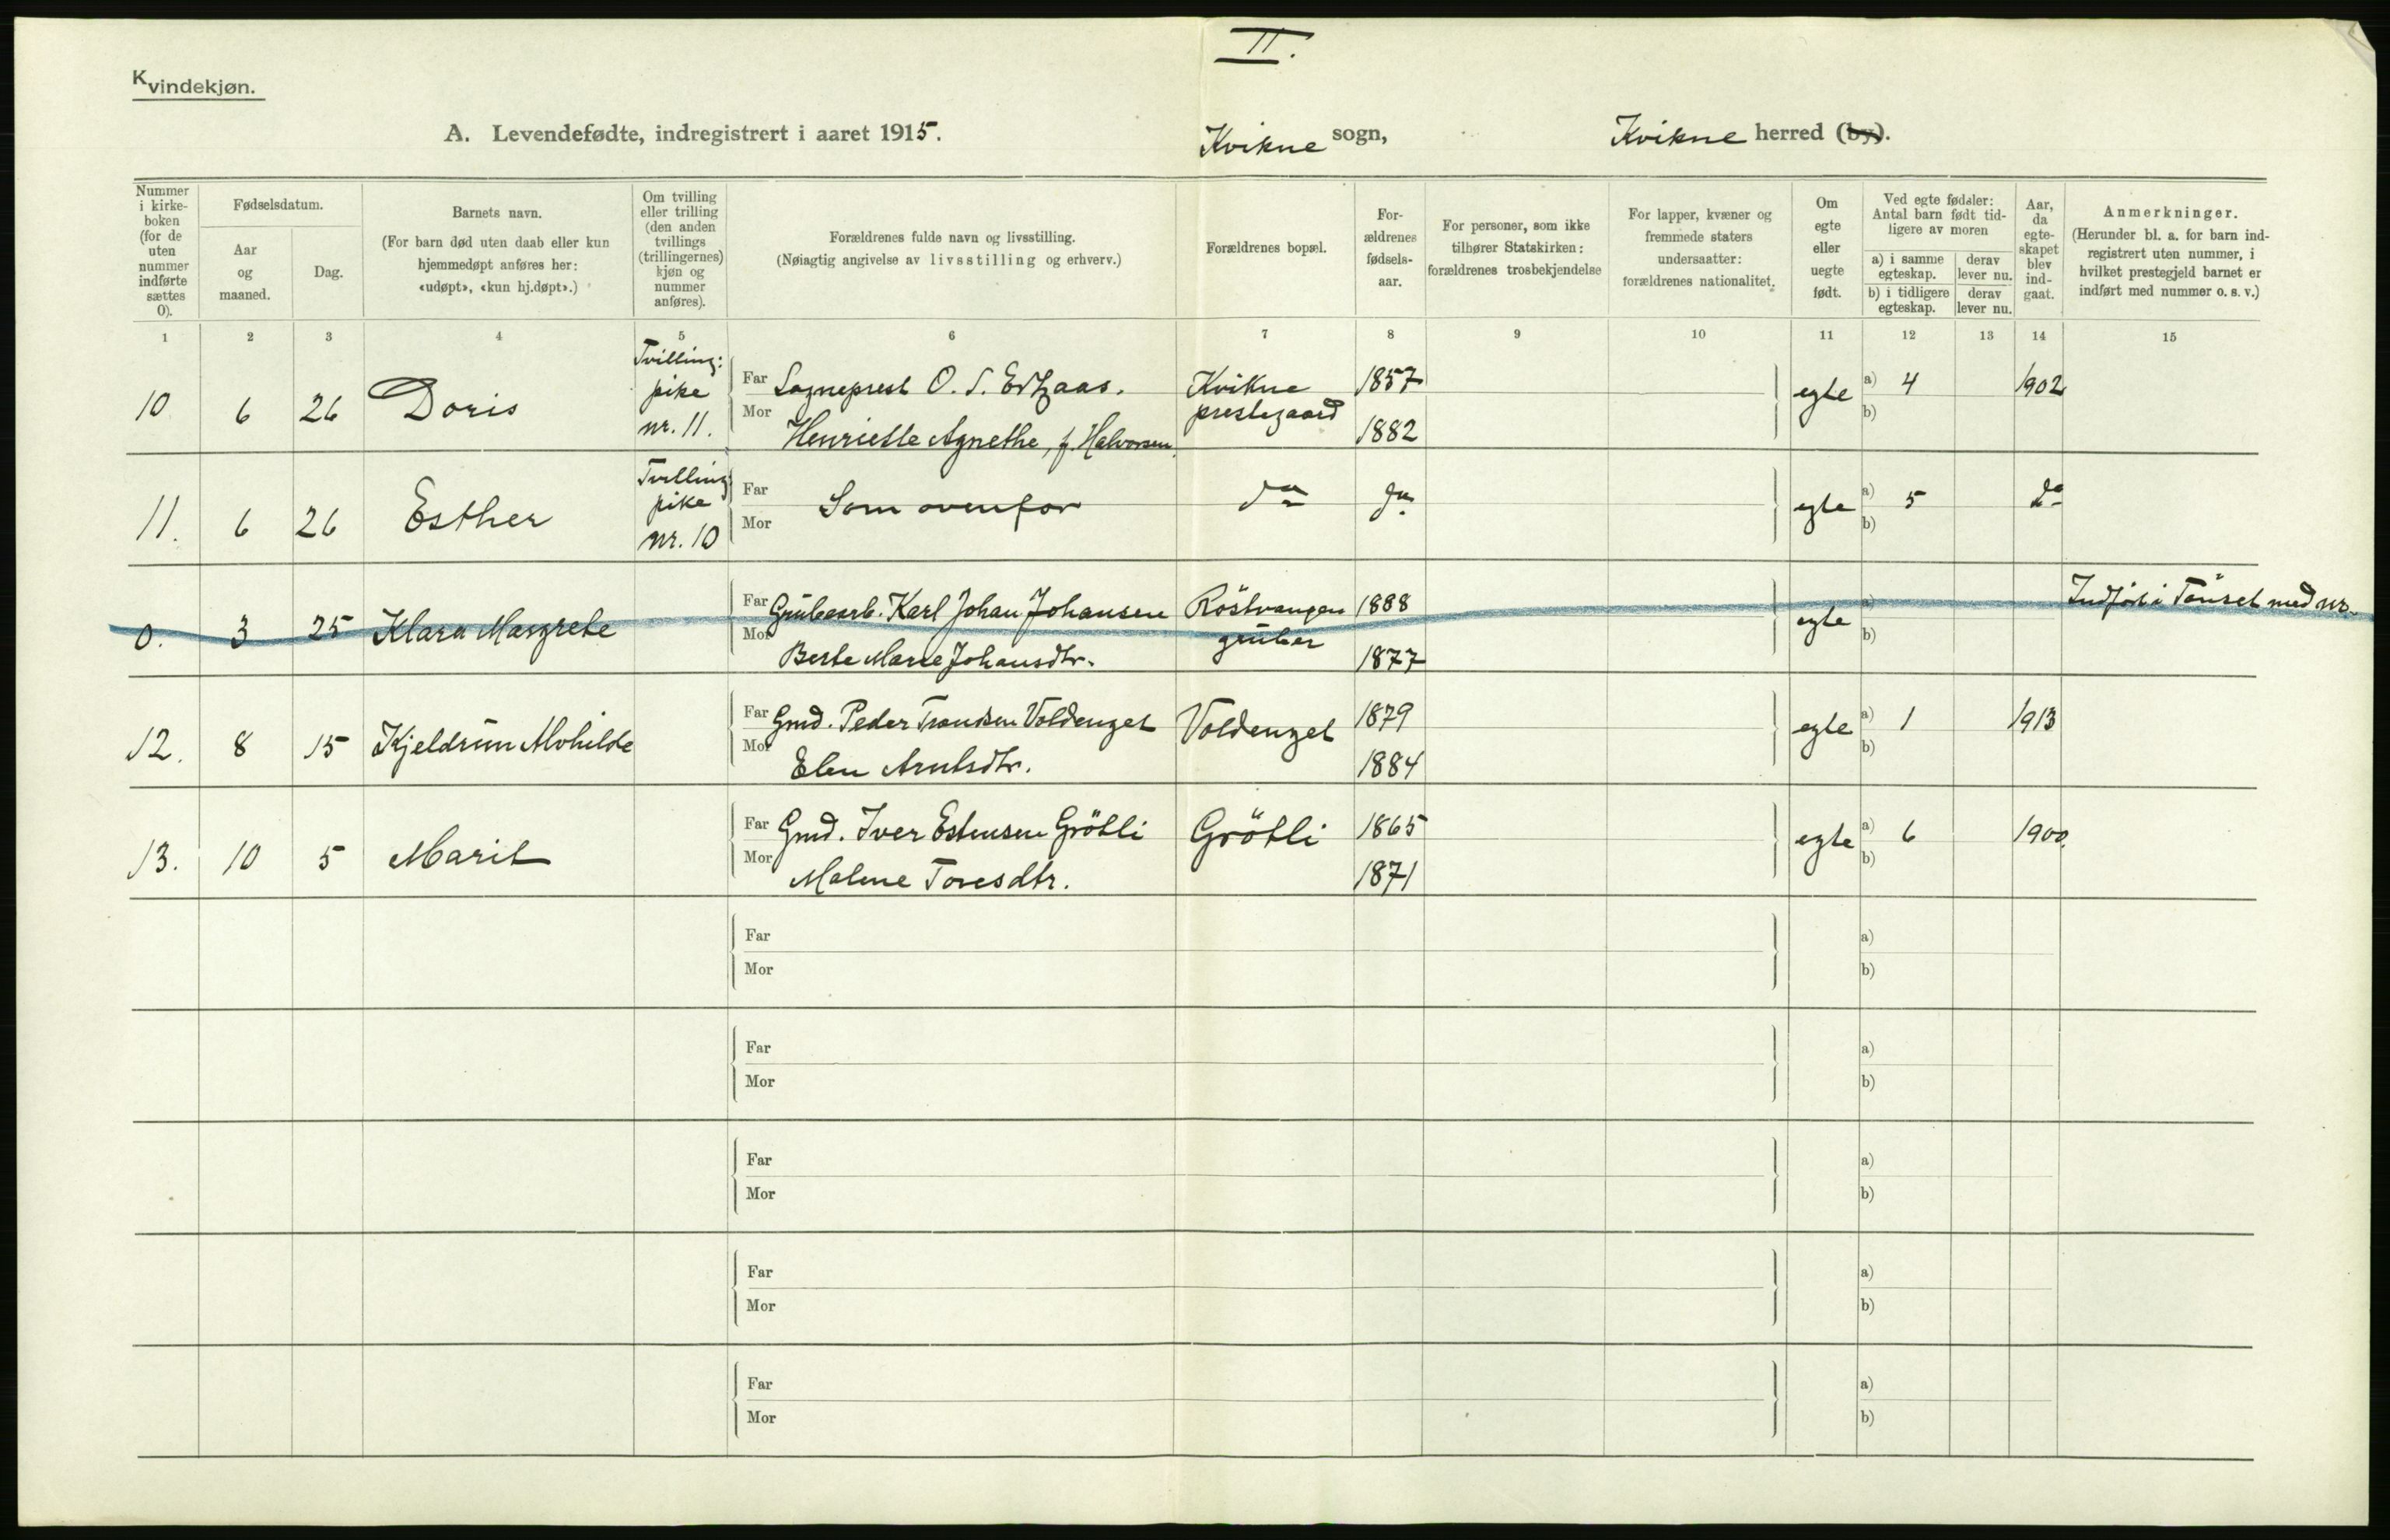 II.
Kvindekjøn.
A. Levendefødte, indregistrert i aaret 1915. Kvikne sogn, Kvikne herred (by).
Nummer i kirkeboken (for de uten nummer indførte sættes 0).
Fødselsdatum.
Aar og maaned.
Dag.
Barnets navn.
(For barn død uten daab eller kun
hjemmedøpt anføres her:
«udøpt», «kun hj.døpt».)
Om tvilling
eller trilling
(den anden
tvillings
(trillingernes)
kjøn og
nummer
anføres).
Forældrenes fulde navn og livsstilling.
(Nøiagtig angivelse av livsstilling og erhverv.)
Forældrenes bopæl.
For-
ældrenes
fødsels-
aar.
For personer, som ikke
tilhører Statskirken:
forældrenes trosbekjendelse
For lapper, kvæner og
fremmede staters
undersaatter:
forældrenes nationalitet.
Om
egte
eller
uegte
født.
Ved egte fødsler:
Antal barn født tid-
ligere av moren
a) i samme egteskap.
derav lever nu.
b) i tidligere egteskap.
derav lever nu.
Aar,
da
egte-
skapet
blev
ind-
gaat.
Anmerkninger.
(Herunder bl. a. for barn ind-
registrert uten nummer, i
hvilket prestegjeld barnet er
indført med nummer o. s. v.)
1 2 3 4 5 6 7 8 9 10 11 12 13 14 15
10 6 26 Doris Tvilling: pike nr. 11. Far Sogneprest O. S. Kvikne prestegaard 1857 egte a) 4 1902
Mor Henriette Agnethe, f. Halvorsen. 1882 b)
11. 6 26 Esther Tvilling pike nr. 10 Far Mor Som ovenfor do do egte a) 5 b) do
0. 3 25 Klara Margrete Far Grubearb. Karl Johan Johansen Röstvangen gruber 1888 egte a) Indført i Tönset med nr.
Mor Berte Marie Johansdtr. 1877 b)
12. 8 15 Kjeldrun Alvhilde Far Gmd. Peder Trondsen Voldenget Voldenget 1879 egte a) 1 1913
Mor Elen Arntsdtr. 1884 b)
13. 10 5 Marit Far Gmd. Iver Estensen Grötli Grötli 1865 egte a) 6 1900.
Mor Malene Toresdtr. 1871 b)
Far a)
Mor b)
Far a)
Mor b)
Far a)
Mor b)
Far a)
Mor b)
Far a)
Mor b)